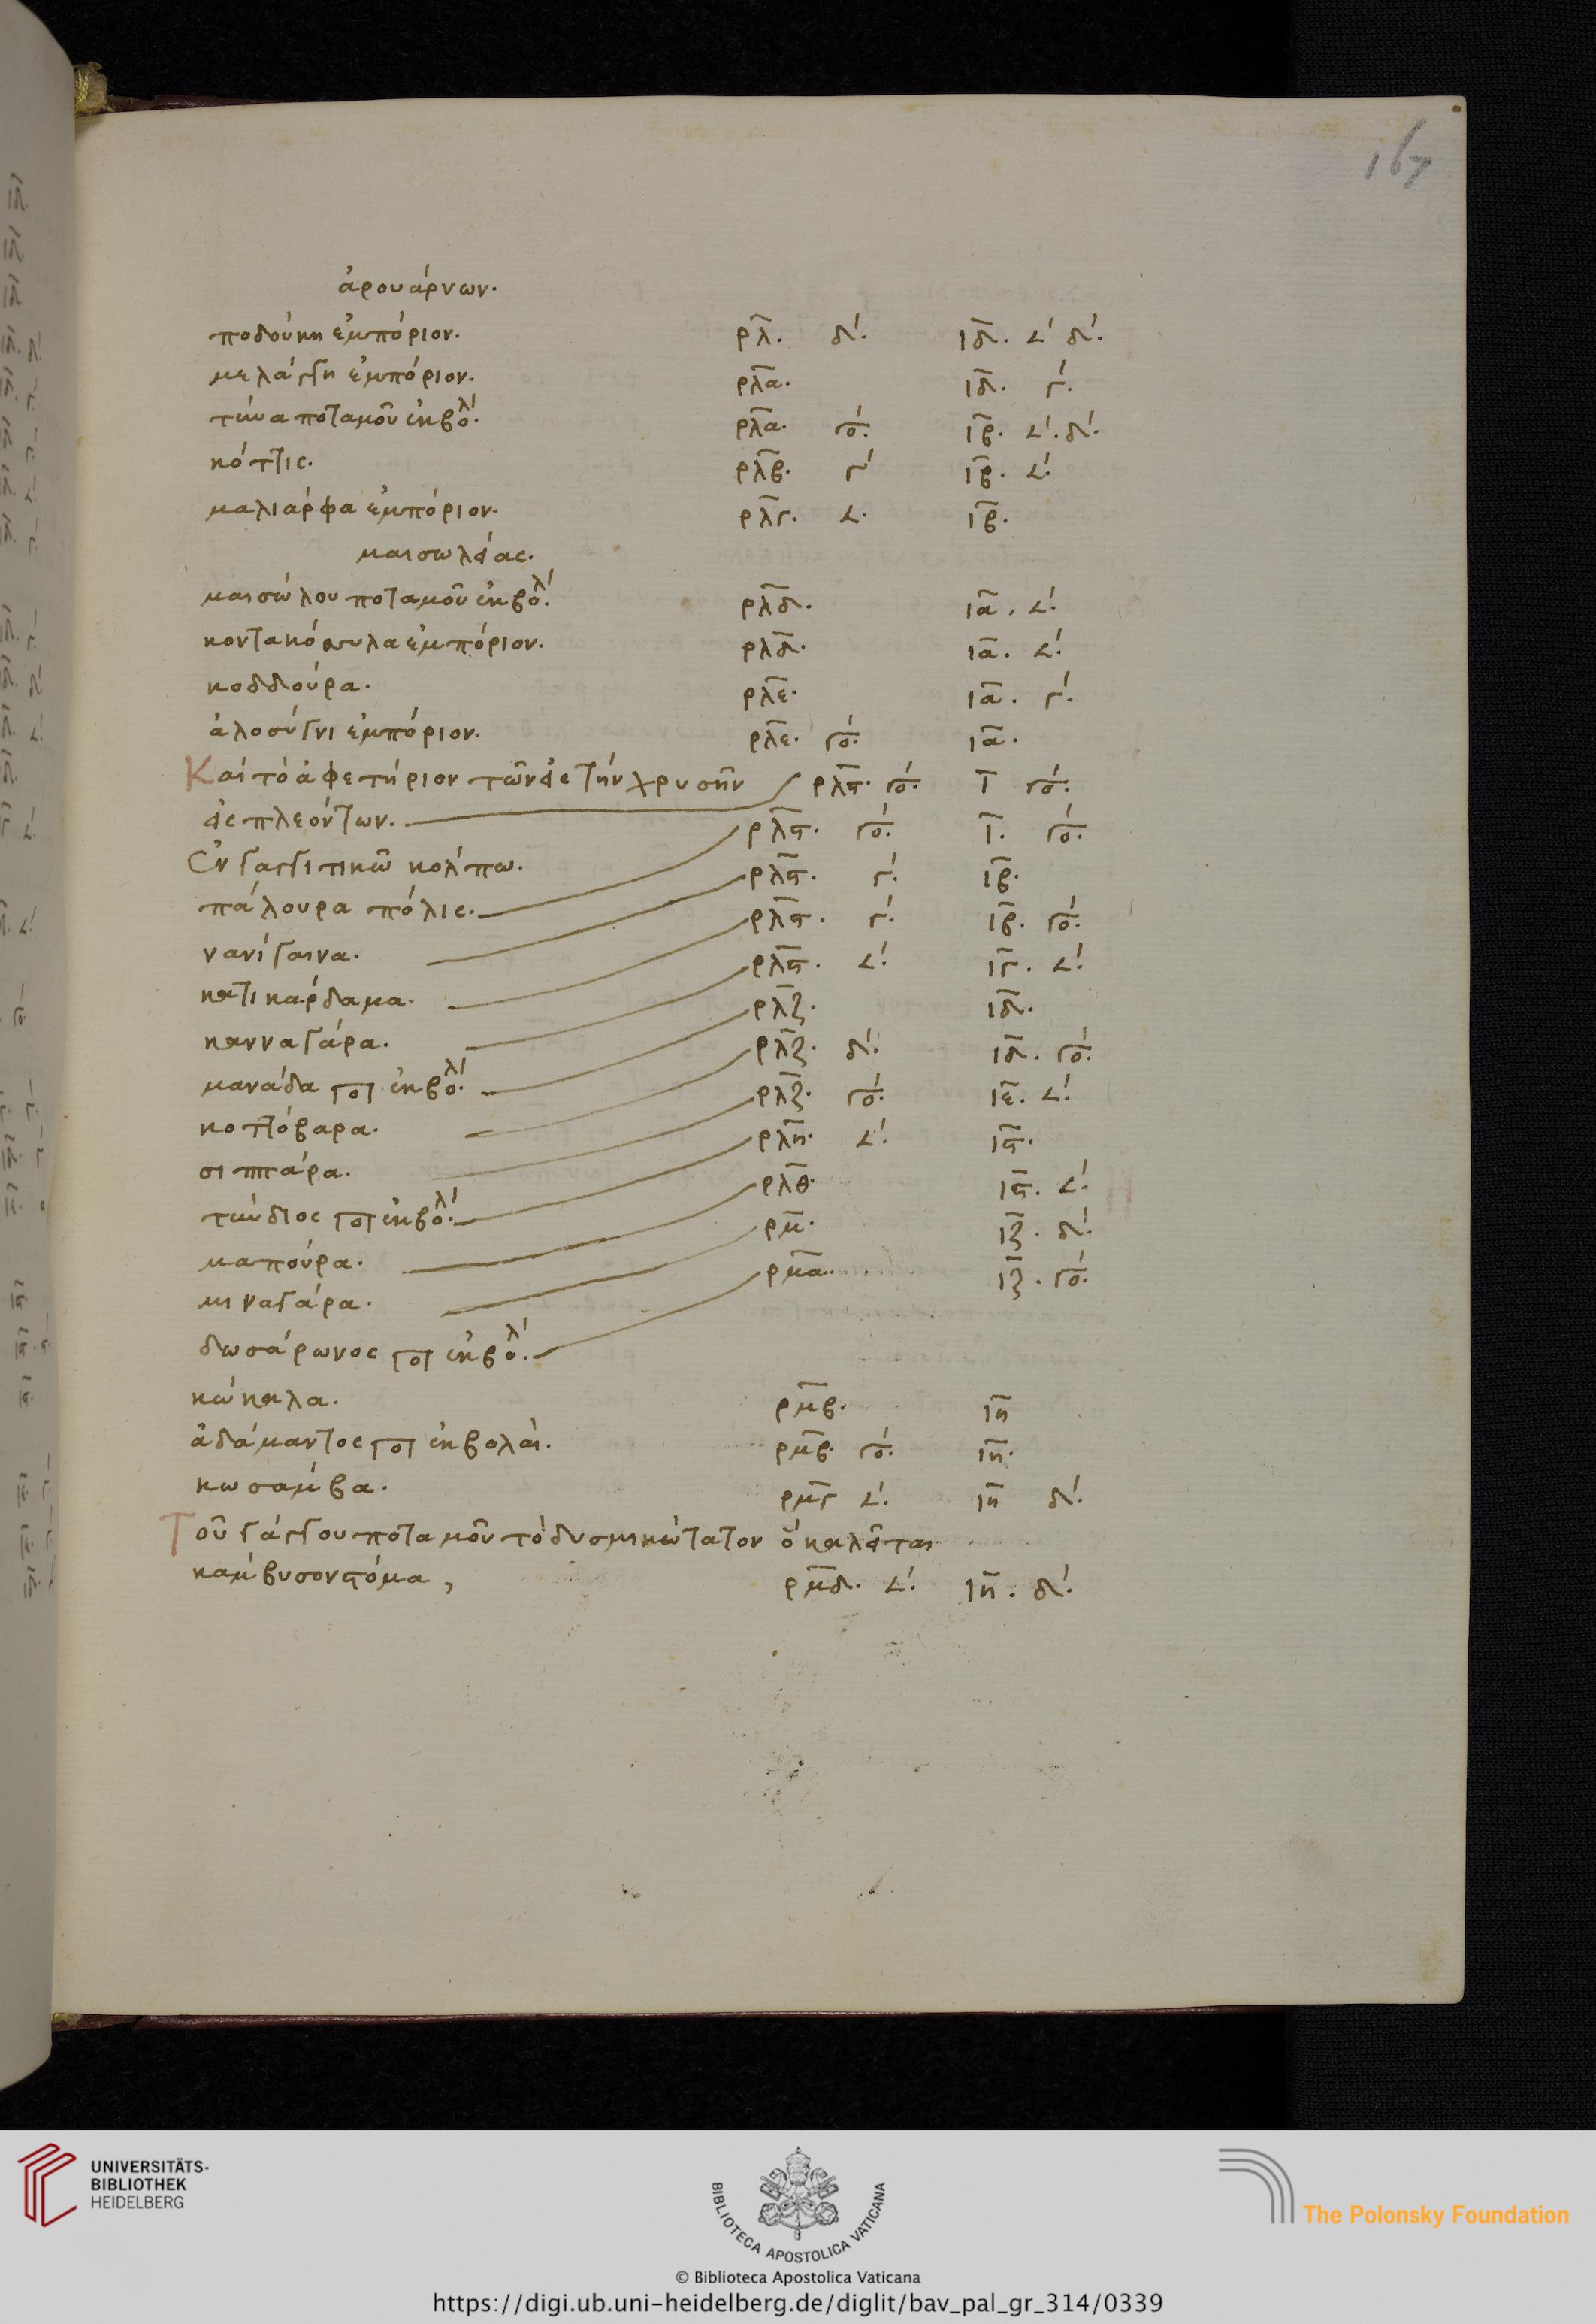 167
ἀρουάρνων.
ποδούκη ἐμπόριον. ρλ̅. δ´. ιδ̅. 𐅵´ δ´.
μελάγγη ἐμπόριον. ρλα̅. ιδ̅. γ´.
τύνα ποταμοῦ ἐκβολ´. ρλα̅. γο´. ιβ̅. 𐅵´. δ´.
κόττις. ρλβ̅. γ´ ιβ̅. 𐅵´.
μαλιάρφα ἐμπόριον. ρλγ̅. 𐅵. ιβ̅.
μαισωλείας.
μαισώλου ποταμοῦ ἐκβολ´. ρλδ̅. ια̅. 𐅵´.
κοντακόσσυλα ἐμπόριον. ρλδ̅. ια̅. 𐅵´.
κοδδούρα. ρλε̅. ια̅. γ´.
ἀλοσύγνι ἐμπόριον. ρλε̅. γο´. ια̅.
Καὶ τὸ ἀφετήριον τῶν εἰς τὴν χρυσῆν ρλϛ̅. γο´. ι̅ γο´.
εἰσπλεόντων. ρλϛ̅. γο´. ι̅. γο´.
Ἐν γαγγιτικῶ κόλπω. ρλϛ̅. γ´. ιβ̅.
πάλουρα πόλις. ρλϛ̅. γ´. ιβ̅. γο´.
νανίγαινα. ρλϛ̅. 𐅵´. ιγ̅. 𐅵´.
κατικάρδαμα. ρλζ̅. ιδ̅.
κανναγάρα. ρλζ̅. δ´. ιδ̅. γο´.
μανάδα ποτ ἐκβολ´. ρλζ̅. γο´. ιε̅. 𐅵´.
κοττόβαρα. ρλη̅. 𐅵´. ιϛ̅.
σιππάρα. ρλθ̅. ιϛ̅. 𐅵´.
τύνδιος ποτ ἐκβολ´. ρμ̅. ιζ̅. δ´.
μαπούρα. ρμα̅. ιζ̅. γο´.
μιναγάρα.
δωσάρωνος ποτ ἐκβολ´.
κώκαλα. ρμβ̅. ιη̅
ἀδάμαντος ποτ ἐκβολαί. ρμβ̅. γο´. ιη̅.
κωσαμβα. ρμγ̅ 𐅵´. ιη̅ δ´.
Τοῦ γάγγου ποταμοῦ τὸ δυσμικώτατον ὃ καλεῖται
καμβυσονστόμα, ρμδ̅. 𐅵´. ιη̅. δ´.
UNIVERSITÄTS-
BIBLIOTHEK
HEIDELBERG
BIBLIOTECA APOSTOLICA VATICANA
The Polonsky Foundation
© Biblioteca Apostolica Vaticana
https://digi.ub.uni-heidelberg.de/diglit/bav_pal_gr_314/0339